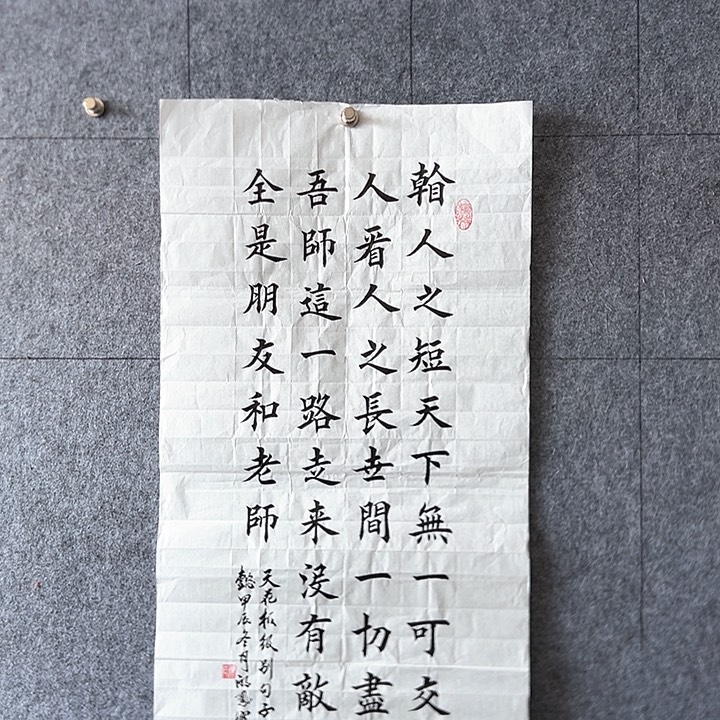 看人之短天下無一可交
人看人之長世間一切盡
吾師這一路走来没有敵
全是朋友和老師
天花板級别句子
甲辰冬月